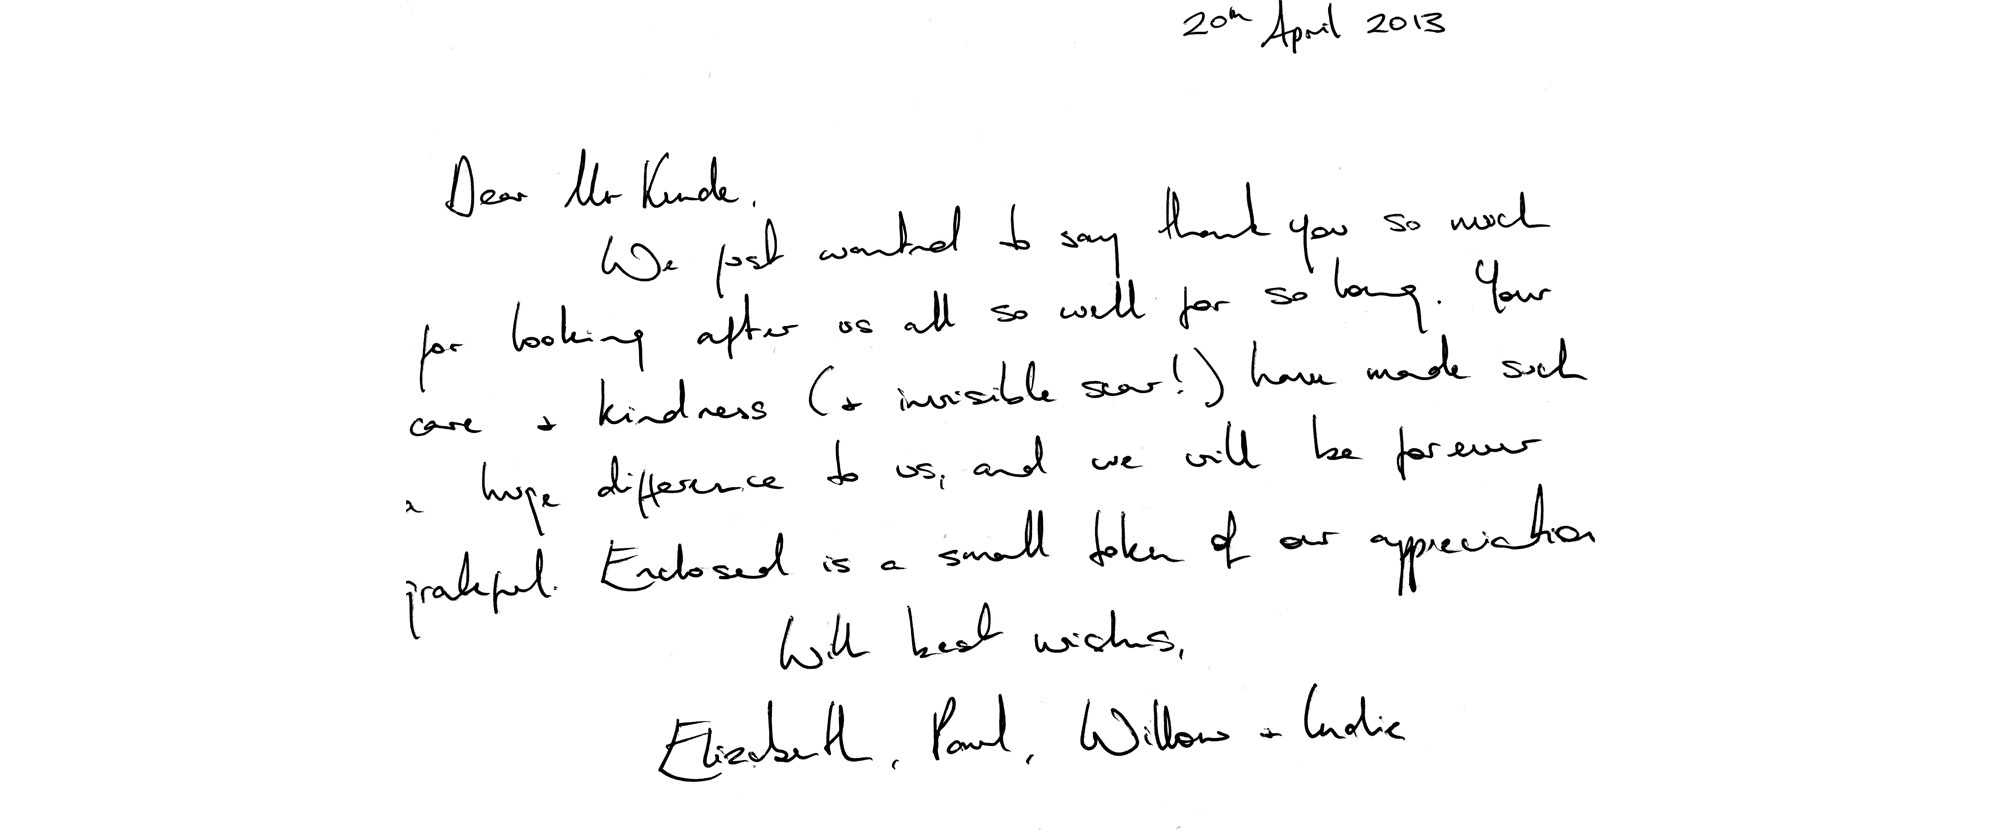 20th April 2013
Dear Mr Kunde,
We just wanted to say thank you so much
for looking after us all so well for so long. Your
care + kindness (+ invisible scar!) have made such
a huge difference to us, and we will be forever
grateful. Enclosed is a small token of our appreciation
With best wishes,
Elizabeth, Paul, Willow + Indie